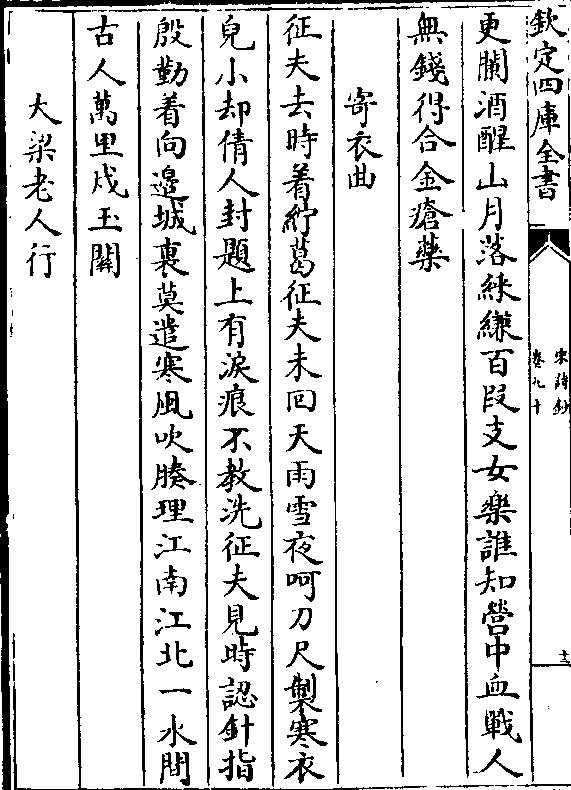 欽定四庫全書
宋詩鈔
卷九十
十三
更闌酒醒山月落綵縑百段支女樂誰知營中血戰人
無錢得合金瘡藥
寄衣曲
征夫去時着紵葛征夫未回天雨雪夜呵刀尺製寒衣
兒小却倩人封題上有淚痕不教洗征夫見時認針指
殷勤着向邊城裏莫遣寒風吹腠理江南江北一水間
古人萬里戍玉關
大梁老人行